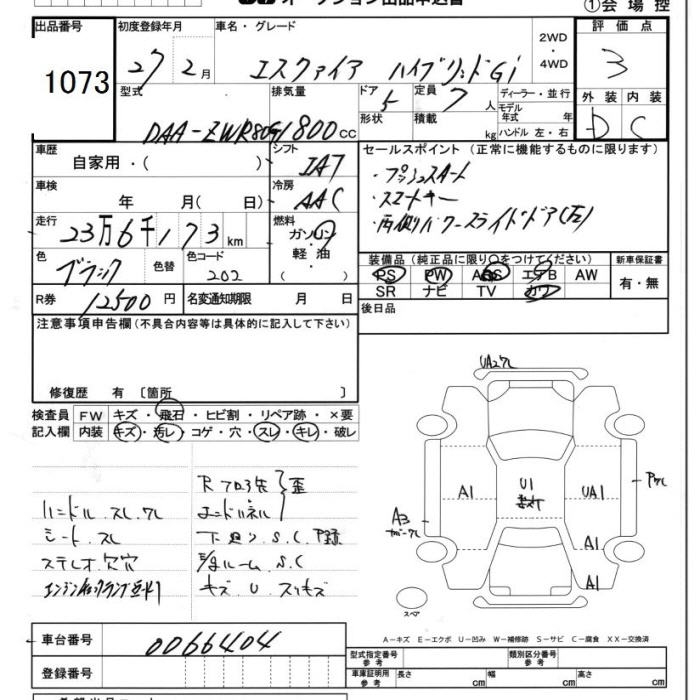 オークション出品申込書
①会場控
出品番号 1073
初度登録年月 27 2月
車名・グレード エスクァイア ハイブリッドGi
2WD・4WD
評価点 3
型式 DAA-ZWR80G
排気量 1800cc
ドア 5 形状
定員 7人 積載 kg
ディーラー・並行
モデル年式 年
ハンドル 左・右
外装 D 内装 C
車歴 自家用・( )
シフト IAT
セールスポイント (正常に機能するものに限ります)
・プッシュスタート
・スマートキー
・両側パワースライドドア(左)
車検 年 月( 日)
冷房 AAC
走行 23万6千173km
燃料 ガソリン・軽油・( )
色 ブラック 色替
色コード 202
装備品 (純正品に限り○をつけてください)
PS PW ABS エアB AW
SR ナビ TV カワ
新車保証書 有・無
R券 12500円
名変通知期限 月 日
後日品
注意事項申告欄 (不具合内容等は具体的に記入して下さい)
修復歴 有 〔箇所 〕
検査員記入欄
FW キズ・飛石・ヒビ割・リペア跡・×要
内装 キズ・汚レ・コゲ・穴・スレ・キレ・破レ
ハンドル スレ ワレ
シート スレ
ステレオ 穴穴
R フロア先
エンドパネル
歪
下廻り S.C
ルーム S.C
キズ U スリキズ
UA2 ワレ
A1
U1
UA1
P ワレ
A3
A1
A1
スペア
A-キズ E-エクボ U-凹み W-補修跡 S-サビ C-腐食 XX-交換済
車台番号 0066404
登録番号
型式指定番号 参考
類別区分番号 参考
車庫証明用 参考 長さ cm 幅 cm 高さ cm